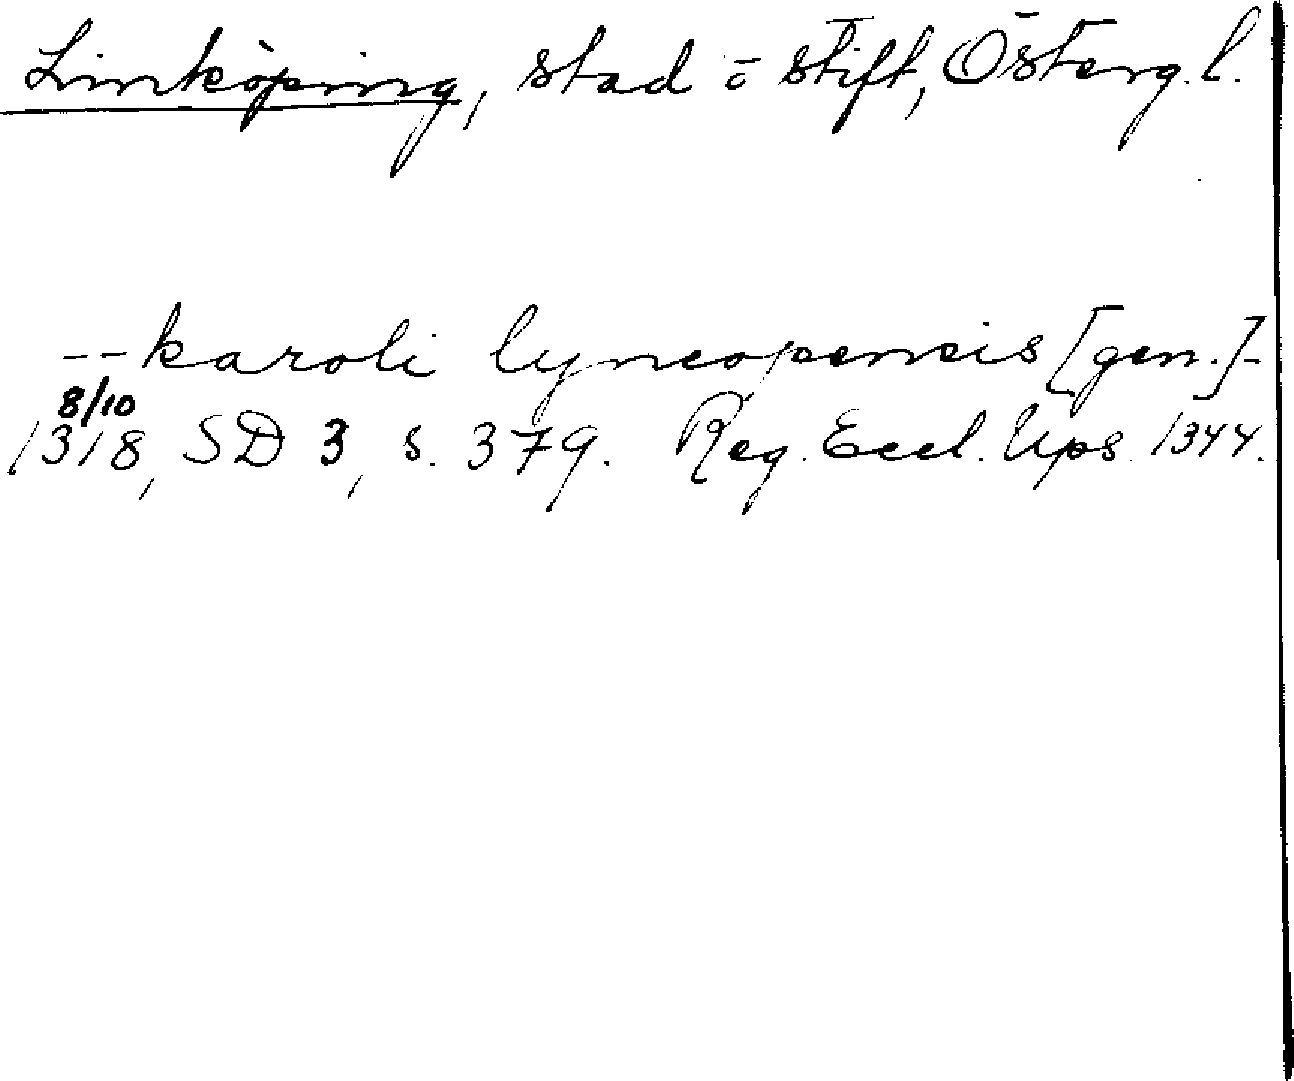 Linköping, stad o stift, Österg.l.
-- karoli lyncopensis [gen.]-
8/10
1318, SD 3, s. 379. Reg. Eccl. Ups. 1344.